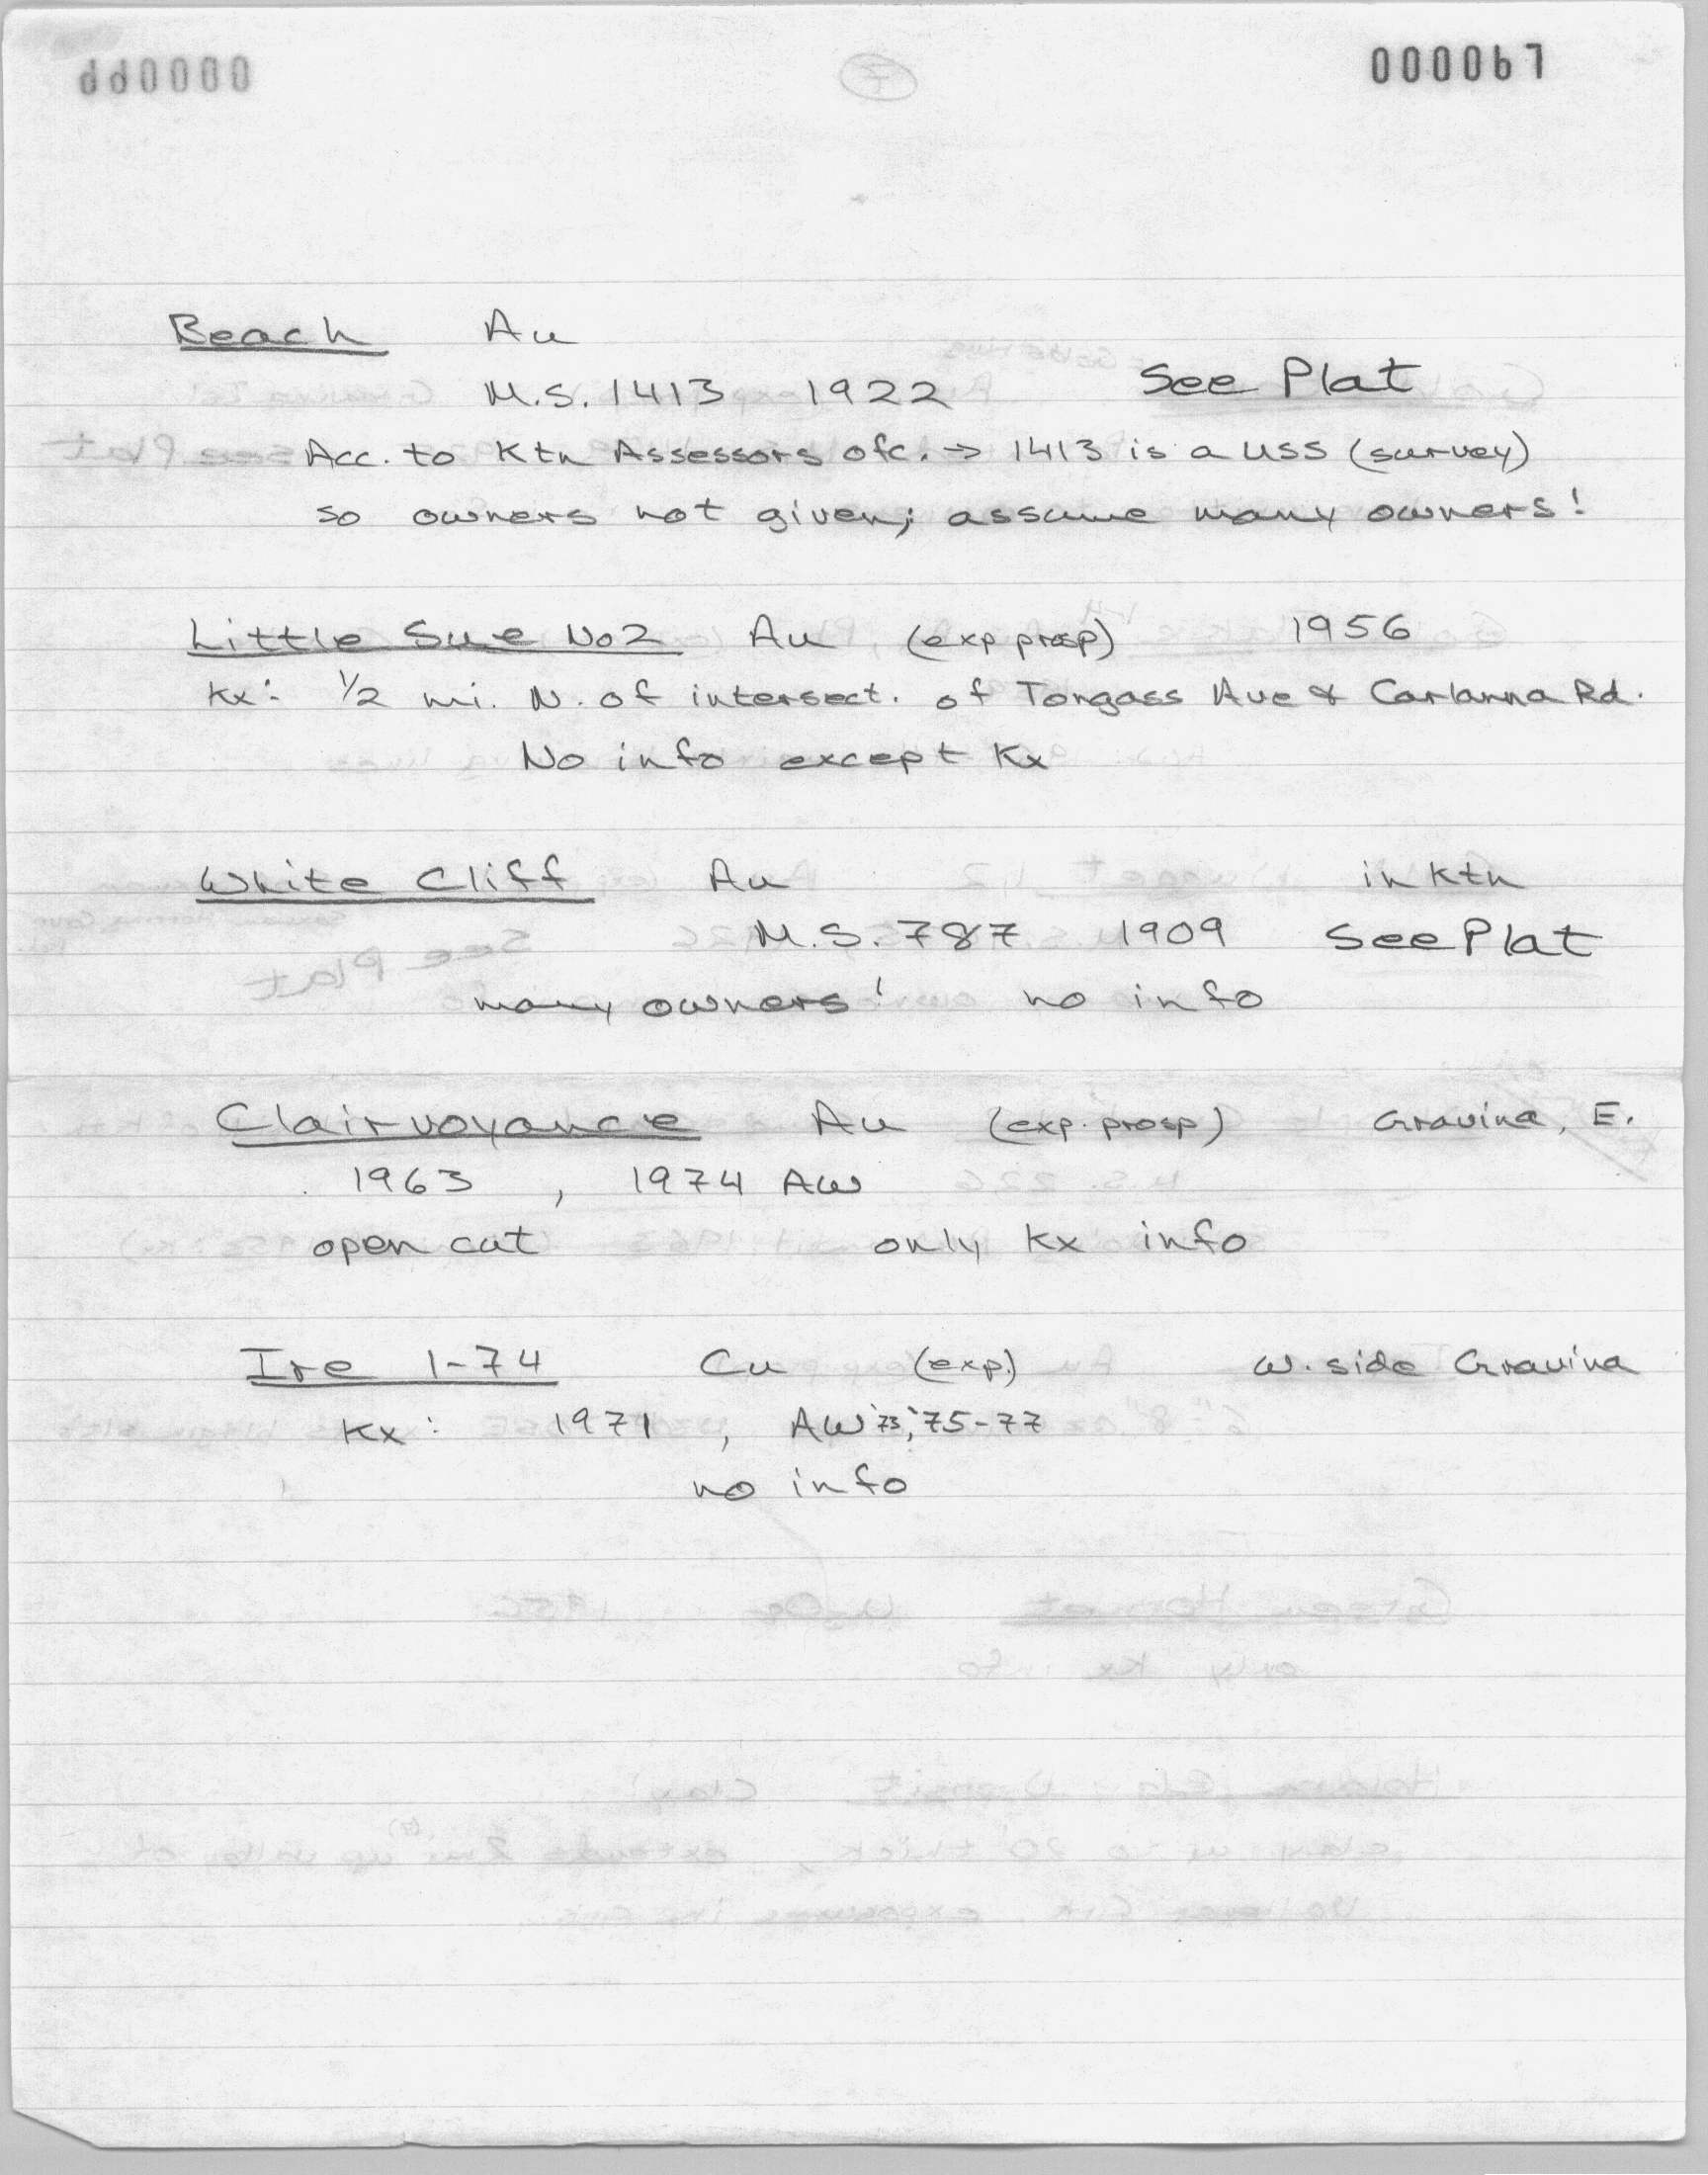 000067
Beach Au
M.S. 1413 1922 See Plat
Acc. to Ktn Assessors ofc. → 1413 is a USS (survey)
so owners not given; assume many owners!
Little Sue No 2 Au (exp prosp) 1956
Kx: 1/2 mi. N. of intersect. of Tongass Ave & Carlanna Rd.
No info except Kx
White Cliff Au in Ktn
M.S. 787 1909 See Plat
many owners! no info
Clairvoyance Au (exp. prosp) Gravina, E.
1963 , 1974 AW
open cut only Kx info
Ire 1-74 Cu (exp.) W. side Gravina
Kx: 1971 , AW '73, '75-77
no info